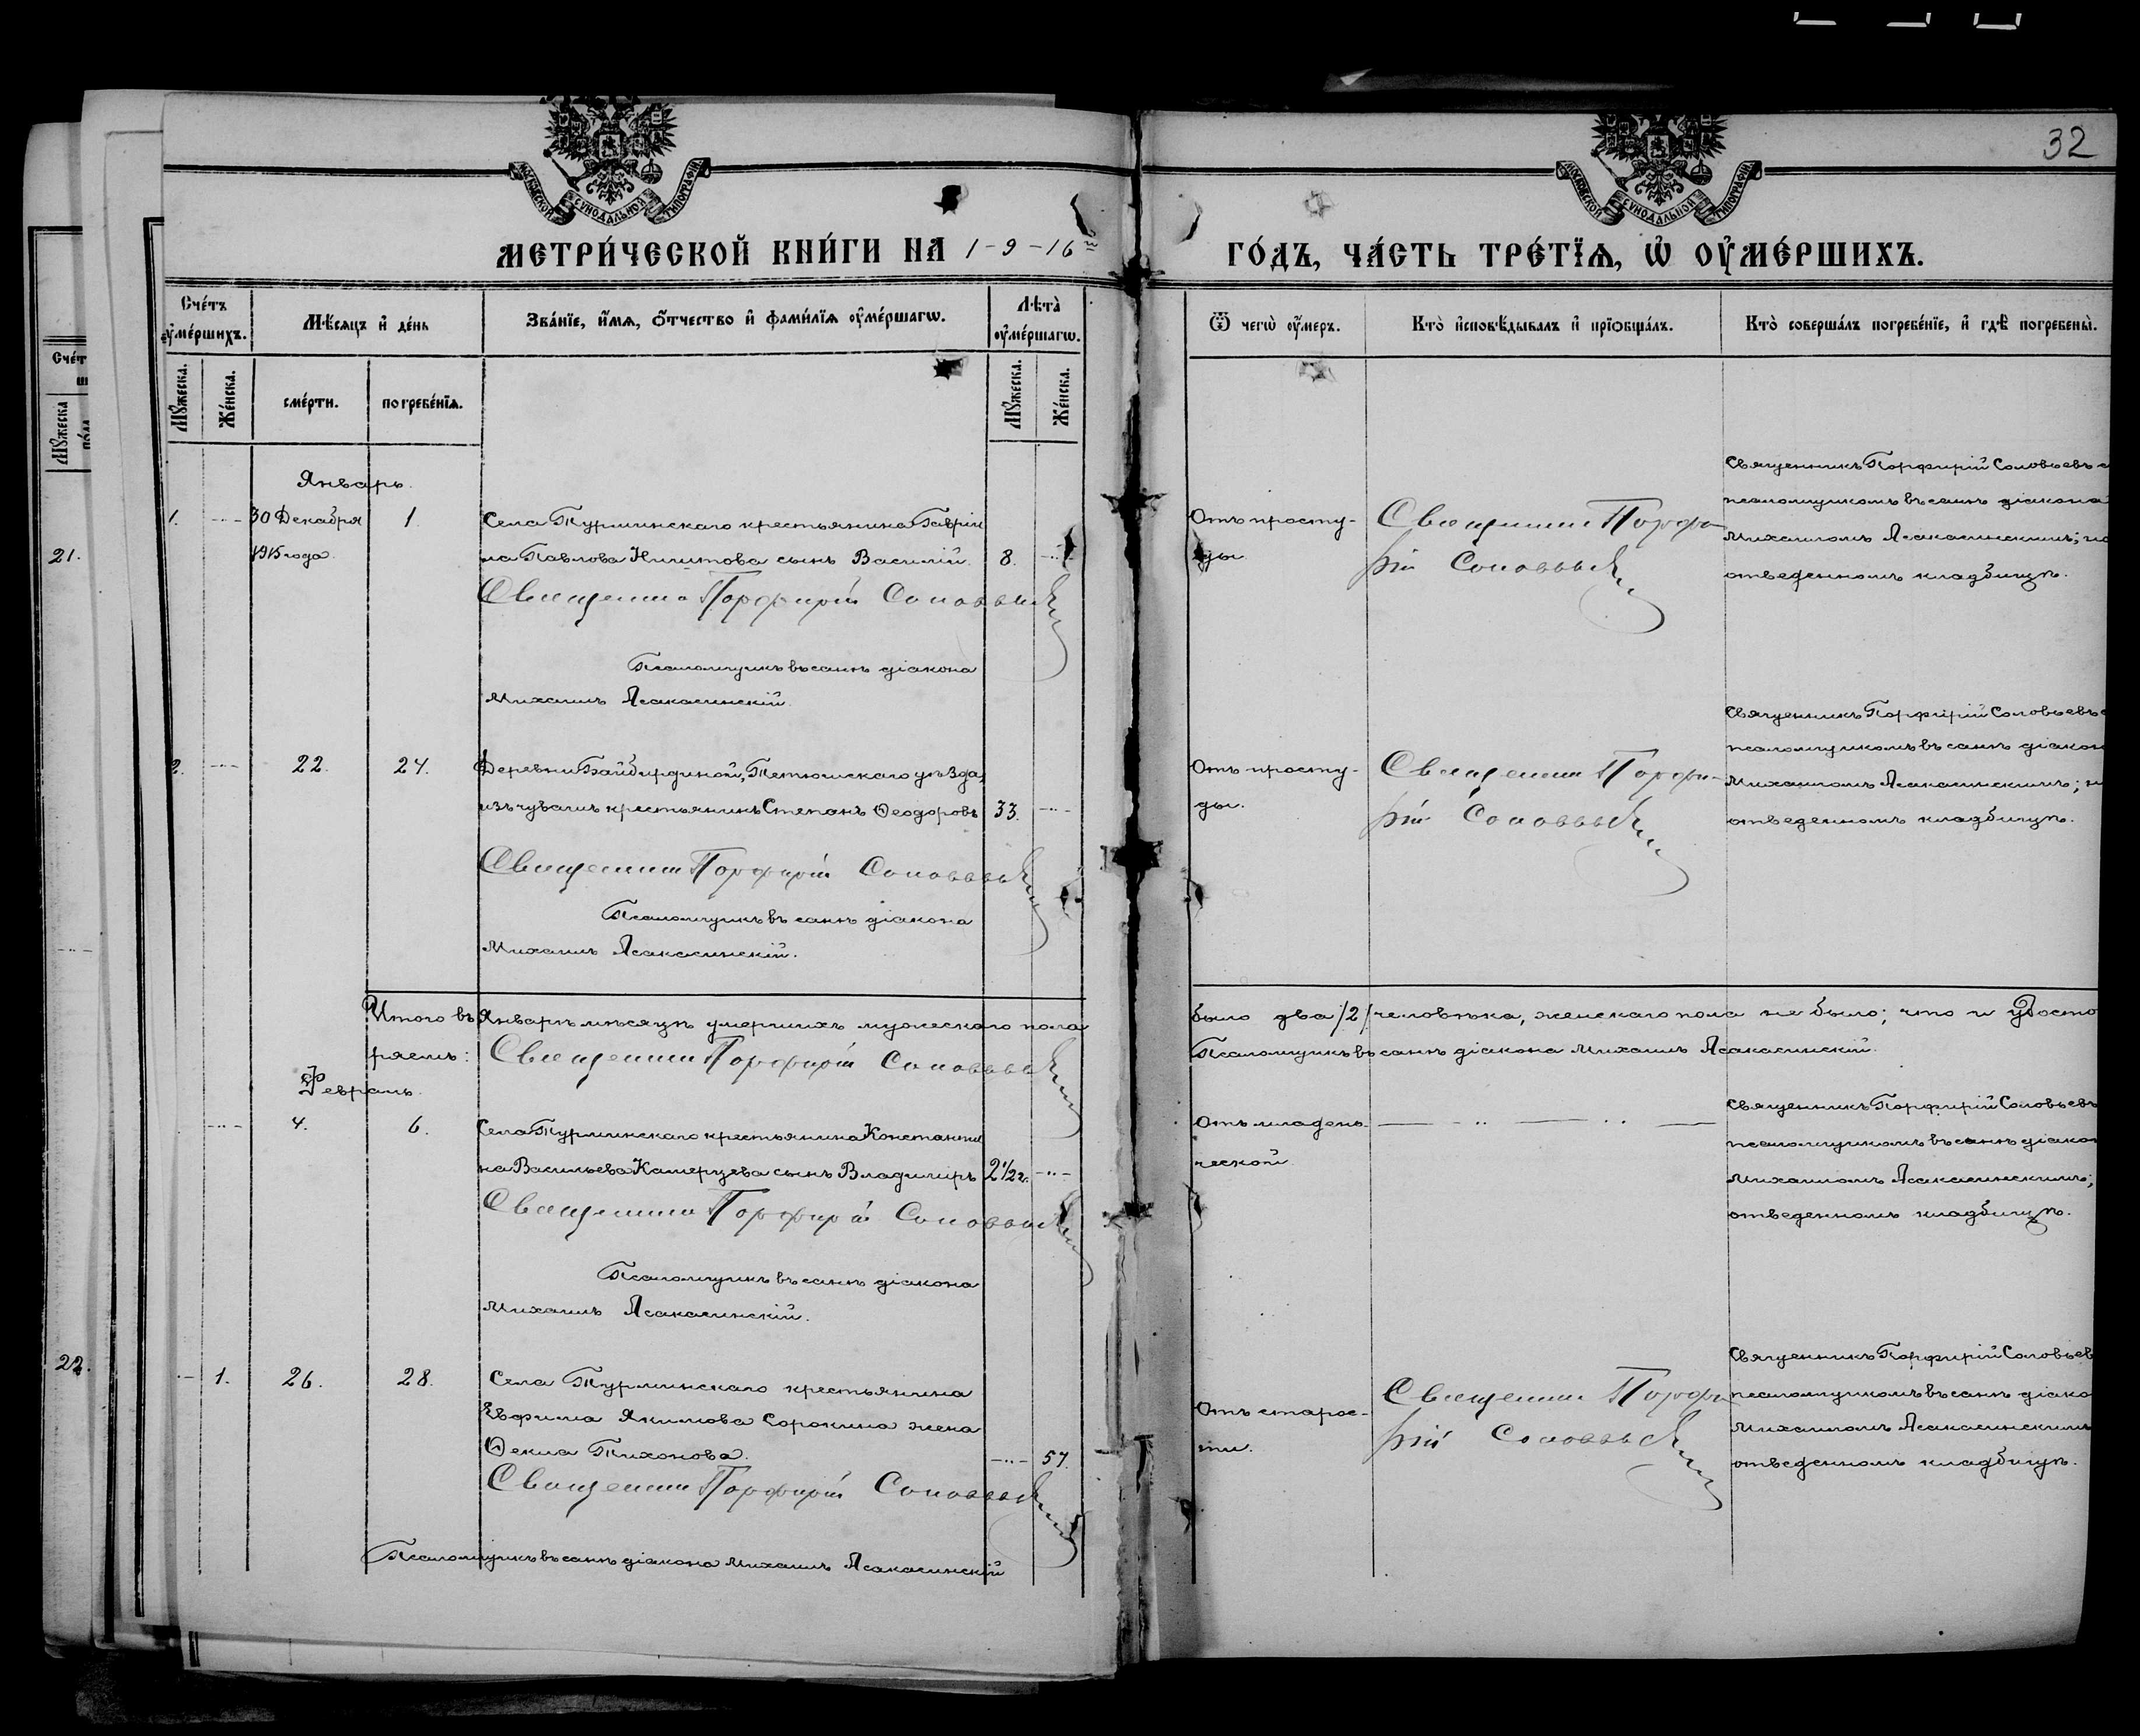 32
МОСКОВСКОЙ СУНОДАЛЬНОЙ ТИПОГРАФІИ
МОСКОВСКОЙ СУНОДАЛЬНОЙ ТИПОГРАФІИ
МЕТРИ́ЧЕСКОЙ КНИ́ГИ НА 1-9-16
ГО́ДЪ, ЧА́СТЬ ТРЕ́ТЇѦ, Ѡ҆ ОУ҆МЕ́РШИХЪ.
Сче́тъ оу҆ме́ршихъ.
Мѣ́сѧцъ и҆ де́нь
Зва́нїе, и҆́мѧ, ѻ҆́тчество и҆ фами́лїѧ оу҆ме́ршагѡ.
Лѣта̀ оу҆ме́ршагѡ.
Ѿ чегѡ̀ оу҆́меръ.
Кто̀ и҆сповѣ́дывалъ и҆ прїѻбща́лъ.
Кто̀ соверша́лъ погребе́нїе, и҆ гдѣ̀ погребены̀.
Мꙋ́жеска.
Же́нска.
сме́рти.
погребе́нїѧ.
Мꙋ́жеска.
Же́нска.
Январь.
1. 30 Декабря 1. Села Турминскаго крестьянина Гаврiи
1915 года. ла Павлова сынъ Василiй. 8.
Священникъ Порфирiй Соловьевъ
Псаломщикъ въ санѣ дiакона
Михаилъ Асакасинскiй.
Отъ просту-
ды.
Священникъ Порфи-
рiй Соловьевъ
Священникъ Порфирiй Соловьевъ с
псаломщикомъ въ санѣ дiакона
Михаиломъ Асакасинскимъ; на
отведенномъ кладбищѣ.
2. 22. 24. Деревни Байбирдиной, Тетюшскаго уѣзда,
изъ чувашъ крестьянинъ Степанъ Ѳеодоровъ 33.
Священникъ Порфирiй Соловьевъ
Псаломщикъ въ санѣ дiакона
Михаилъ Асакасинскiй.
Отъ просту-
ды.
Священникъ Порфи-
рiй Соловьевъ
Священникъ Порфирiй Соловьевъ с
псаломщикомъ въ санѣ дiакон
Михаиломъ Асакасинскимъ; н
отведенномъ кладбищѣ.
Итого въ Январѣ мѣсяцѣ умершихъ мужескаго пола
было два /2/ человѣка, женскаго пола не было; что и удосто
ряемъ: Священникъ Порфирiй Соловьевъ
Псаломщикъ въ санѣ дiакона Михаилъ Асакасинскiй.
Февраль.
4. 6. Села Турминскаго крестьянина Константи
на Васильева Камерцева сынъ Владимiръ 2 1/2 г.
Священникъ Порфирiй Соловьевъ
Псаломщикъ въ санѣ дiакона
Михаилъ Асакасинскiй.
Отъ младен-
ческой.
Священникъ Порфирiй Соловьевъ
псаломщикомъ въ санѣ дiакон
Михаиломъ Асакасинскимъ;
отведенномъ кладбищѣ.
1. 26. 28. Села Турминскаго крестьянина
Евфима Якимова Сорокина жена
Ѳекла Тихонова. 57.
Священникъ Порфирiй Соловьевъ
Псаломщикъ въ санѣ дiакона Михаилъ Асакасинскiй
Отъ старос-
ти.
Священникъ Порфи-
рiй Соловьевъ
Священникъ Порфирiй Соловьев
псаломщикомъ въ санѣ дiако
Михаиломъ Асакасинскимъ
отведенномъ кладбищѣ.
21.
22.